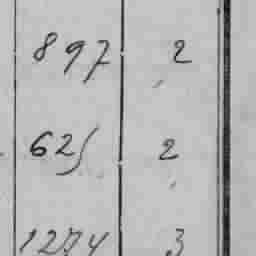 897 2
625 2
1274 3